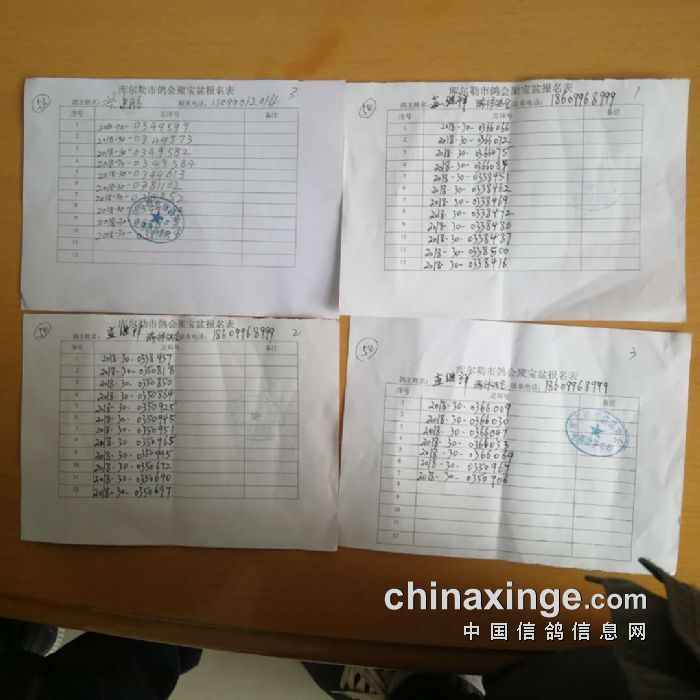 库尔勒市鸽会聚宝盆报名表
3
53
鸽主姓名: 联系电话: 15099012014
序号 足环号 备注
1 2018-30-0349599
2 2018-30-0349573
3 2018-30-0349582
4 2018-30-0349584
5 2018-30-0349613
6 2018-30-0381102
7 2018-30-
8 2018-30-
9 2018-30-
10 2018-30-
11
12
库尔勒市鸽会聚宝盆报名表
1
54
鸽主姓名: 孟继祥 联系电话: 18609968999
序号 足环号 备注
1 2018-30-0366066
2 2018-30-0366072
3 2018-30-0366075
4 2018-30-0366084
5 2018-30-0338451
6 2018-30-0338462
7 2018-30-0338469
8 2018-30-0338472
9 2018-30-0338480
10 2018-30-0338487
11 2018-30-0338500
12 2018-30-0338416
库尔勒市鸽会聚宝盆报名表
2
54
鸽主姓名: 孟继祥 联系电话: 18609968999
序号 足环号 备注
1 2018-30-0338437
2 2018-30-0350818
3 2018-30-0350850
4 2018-30-0350864
5 2018-30-0350925
6 2018-30-0350945
7 2018-30-0350951
8 2018-30-0350965
9 2018-30-0350995
10 2018-30-0350672
11 2018-30-0350690
12 2018-30-0350697
库尔勒市鸽会聚宝盆报名表
3
54
鸽主姓名: 孟继祥 联系电话: 18609968999
序号 足环号 备注
1 2018-30-0366009
2 2018-30-0366030
3 2018-30-0366047
4 2018-30-0366053
5 2018-30-0366069
6 2018-30-0350967
7 2018-30-0350906
8
9
10
11
12
chinaxinge.com
中国信鸽信息网